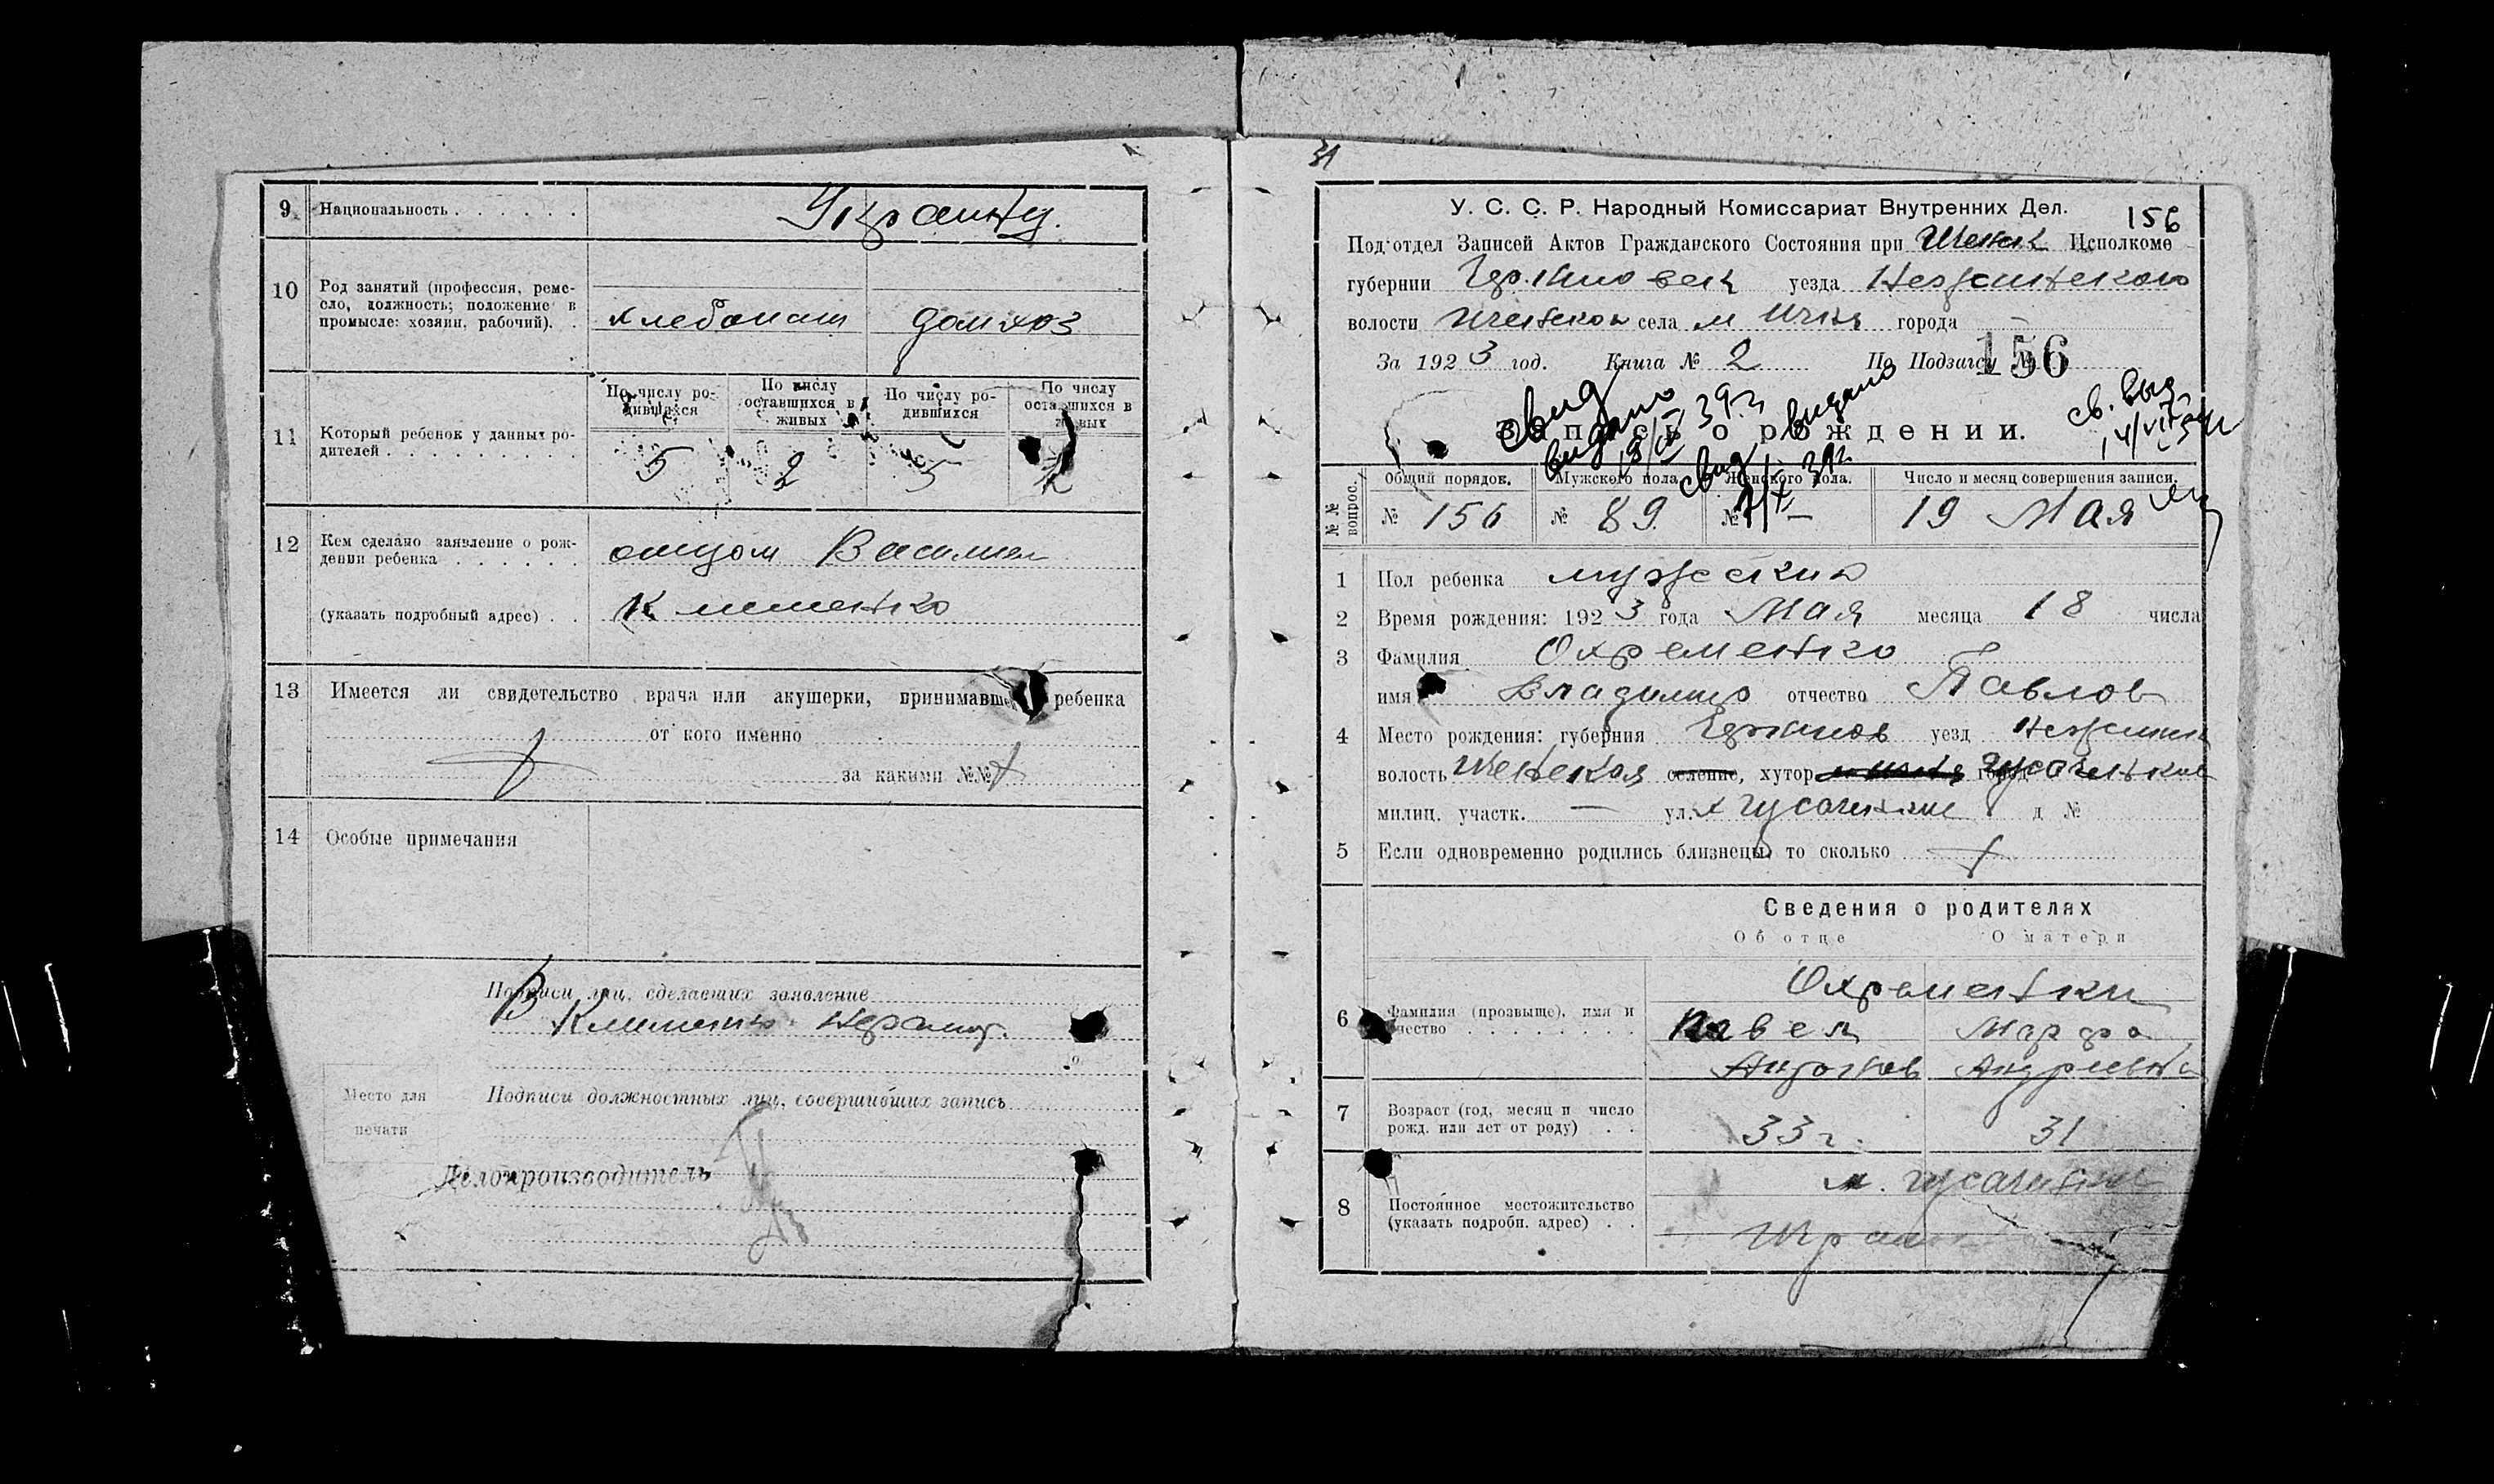 9. Национальность . . . . . .
Украинц.
10 Род занятий (профессия, реме-
сло, должность; положение в
промысле: хозяин, рабочий). .
хлебопаш домхоз
По числу ро-
дившихся
По числу
оставшихся в
живых
По числу ро-
дившихся
По числу
оставшихся в
живых
11 Который ребенок у данных ро-
дителей . . . . . . . . .
5 2 5 2
12 Кем сделано заявление о рож-
дении ребенка . . . . . .
отцом Василием
(указать подробный адрес) . .
Клименко
13 Имеется ли свидетельство врача или акушерки, принимавшей ребенка
от кого именно
за какими №№
14 Особые примечания
Подписи лиц, сделавших заявление
В Клименко неграмот.
Место для
печати
Подписи должностных лиц, совершивших запись
Делопроизводитель
31
У. С. С. Р. Народный Комиссариат Внутренних Дел.
156
Под'отдел Записей Актов Гражданского Состояния при Исполкоме
губернии уезда Нежинского
волости Иченской села м Ичня города —
За 1923 год. Книга № 2 По Подзагсу №
156
свид
видано
39 г
свид видано
св. выд
Запись о рождении.
№№ вопрос.
Общий порядок. Мужского пола. Женского пола. Число и месяц совершения записи.
№ 156 № 89 № — 19 Мая
1 Пол ребенка мужской
2 Время рождения: 1923 года Мая месяца 18 числа
3 Фамилия Охременко
имя Владимир отчество Павлов
4 Место рождения: губерния Чернигов уезд Нежинск
волость Иченская селение, хутор город
милиц. участк. — ул. д №
5 Если одновременно родились близнецы, то сколько
Сведения о родителях
Об отце О матери
Охременки
6 Фамилия (прозвыще), имя и
отчество . . . . . . . .
Павел Марфа
Андреевна
7 Возраст (год, месяц и число
рожд. или лет от роду) . .
33 г. 31
8 Постоянное местожительство
(указать подробн. адрес) . .